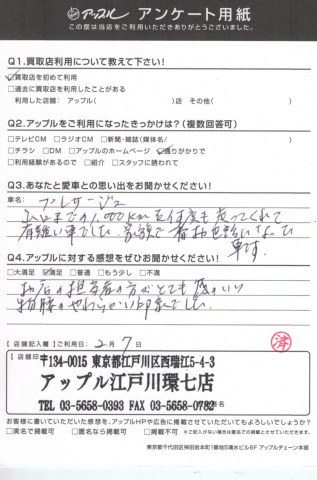 アップル アンケート用紙
この度は当店をご利用いただきありがとうございました。
Q1.買取店利用について教えて下さい!
買取店を初めて利用
□過去に買取店を利用したことがある
利用した店舗: アップル( )店 その他( )
Q2.アップルをご利用になったきっかけは?(複数回答可)
□テレビCM □ラジオCM □新聞・雑誌(媒体名/ )
□チラシ □DM □アップルのホームページ 通りがかりで
□利用経験があるので □紹介 □スタッフに誘われて
Q3.あなたと愛車との思い出をお聞かせください!
車名:
山口までの1,000kmを何度も走ってくれて
有難い車でした。家族で一番お世話になった
車です。
Q4.アップルに対する感想をぜひお聞かせください!
□大満足 満足 □普通 □もう少し □不満
お店の担当者の方がとても感がいい
物腰のやわらかい印象でした。
【店舗記入欄】ご利用日: 2月7日
済
【店舗印】
〒134-0015 東京都江戸川区西瑞江5-4-3
アップル江戸川環七店
TEL 03-5658-0393 FAX 03-5658-0782
お客様に書いていただいた感想を、アップルHPや広告に掲載させていただいてもよろしいでしょうか?
□実名で掲載可 □匿名なら掲載可 □掲載不可 ※ご記入がない場合は匿名での掲載とさせていただきます。
東京都千代田区神田岩本町1番地5清水ビル6F アップルチェーン本部